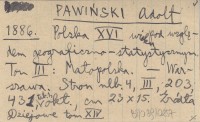 PAWIŃSKI Adolf
1886. Polska XVI wieku pod wzglę-
dem geograficzno-statystycznym
Tom III: Małopolska. — War-
szawa. Stron nlb. 4, III, 203,
432, cm 23 x 15. Źródła
Dziejowe tom XIV